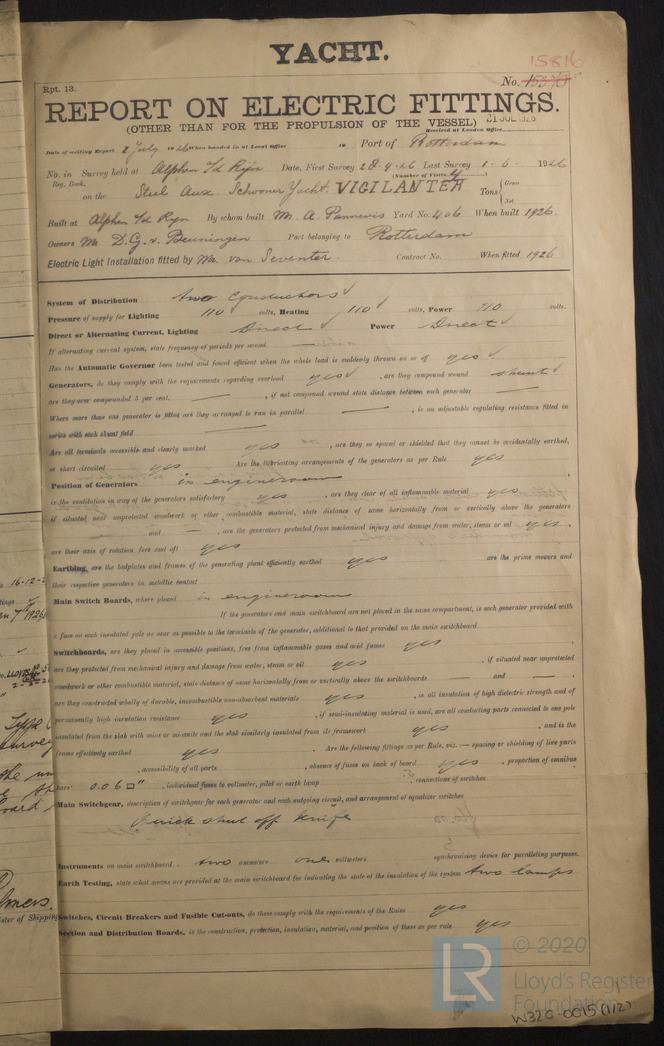 YACHT.
15816
Rpt. 13.
No. 15370
REPORT ON ELECTRIC FITTINGS.
(OTHER THAN FOR THE PROPULSION OF THE VESSEL) 21 JUL 1926
Received at London Office
Date of writing Report 2 July 1926 When handed in at Local Office 19 Port of Rotterdam
No. in Survey held at Alphen a/d Rijn Date, First Survey 28-4-26 Last Survey 1-6-1926
Reg. Book. (Number of Visits 4)
on the Steel Aux. Schooner Yacht. VIGILANTER Tons { Gross
Net
Built at Alphen a/d Rijn By whom built M. A. Pannevis Yard No. 406 When built 1926.
Owners Mr D.G. v. Beuningen Port belonging to Rotterdam
Electric Light Installation fitted by Mr. van Seventer. Contract No. When fitted 1926
System of Distribution two conductors
Pressure of supply for Lighting 110 volts, Heating 110 volts, Power 110 volts.
Direct or Alternating Current, Lighting Direct Power Direct
If alternating current system, state frequency of periods per second
Has the Automatic Governor been tested and found efficient when the whole load is suddenly thrown on or off yes
Generators, do they comply with the requirements regarding overload yes, are they compound wound shunt
are they over compounded 5 per cent. — , if not compound wound state distance between each generator —
Where more than one generator is fitted are they arranged to run in parallel — , is an adjustable regulating resistance fitted in
series with each shunt field —
Are all terminals accessible and clearly marked yes , are they so spaced or shielded that they cannot be accidentally earthed,
or short circuited yes Are the lubricating arrangements of the generators as per Rule yes
Position of Generators in engineroom
is the ventilation in way of the generators satisfactory yes , are they clear of all inflammable material yes
if situated near unprotected woodwork or other combustible material, state distance of same horizontally from or vertically above the generators
— and — , are the generators protected from mechanical injury and damage from water, steam or oil yes.
are their axis of rotation fore and aft yes
Earthing, are the bedplates and frames of the generating plant efficiently earthed yes are the prime movers and
their respective generators in metallic contact
Main Switch Boards, where placed in engineroom
If the generators and main switchboard are not placed in the same compartment, is each generator provided with
a fuse on each insulated pole as near as possible to the terminals of the generator, additional to that provided on the main switchboard
Switchboards, are they placed in accessible positions, free from inflammable gases and acid fumes yes
are they protected from mechanical injury and damage from water, steam or oil yes , if situated near unprotected
woodwork or other combustible material, state distance of same horizontally from or vertically above the switchboards — and — ,
are they constructed wholly of durable, incombustible non-absorbent materials yes , is all insulation of high dielectric strength and of
permanently high insulation resistance yes , if semi-insulating material is used, are all conducting parts connected to one pole
insulated from the slab with mica or micanite and the slab similarly insulated from its framework yes , and is the
frame effectively earthed yes . Are the following fittings as per Rule, viz. — spacing or shielding of live parts
, accessibility of all parts , absence of fuses on back of board yes , proportion of omnibus
bars 0.06 □" , individual fuses to voltmeter, pilot or earth lamp , connections of switches
Main Switchgear, description of switchgear for each generator and each outgoing circuit, and arrangement of equalizer switches
Quick shut off knife
Instruments on main switchboard two ammeters one voltmeters synchronising device for paralleling purposes.
Earth Testing, state what means are provided at the main switchboard for indicating the state of the insulation of the system two lamps
Switches, Circuit Breakers and Fusible Cut-outs, do these comply with the requirements of the Rules yes
Section and Distribution Boards, is the construction, protection, insulation, material, and position of these as per rule yes
LR © 2020
Lloyd's Register
Foundation
W320-0015 (1/2)